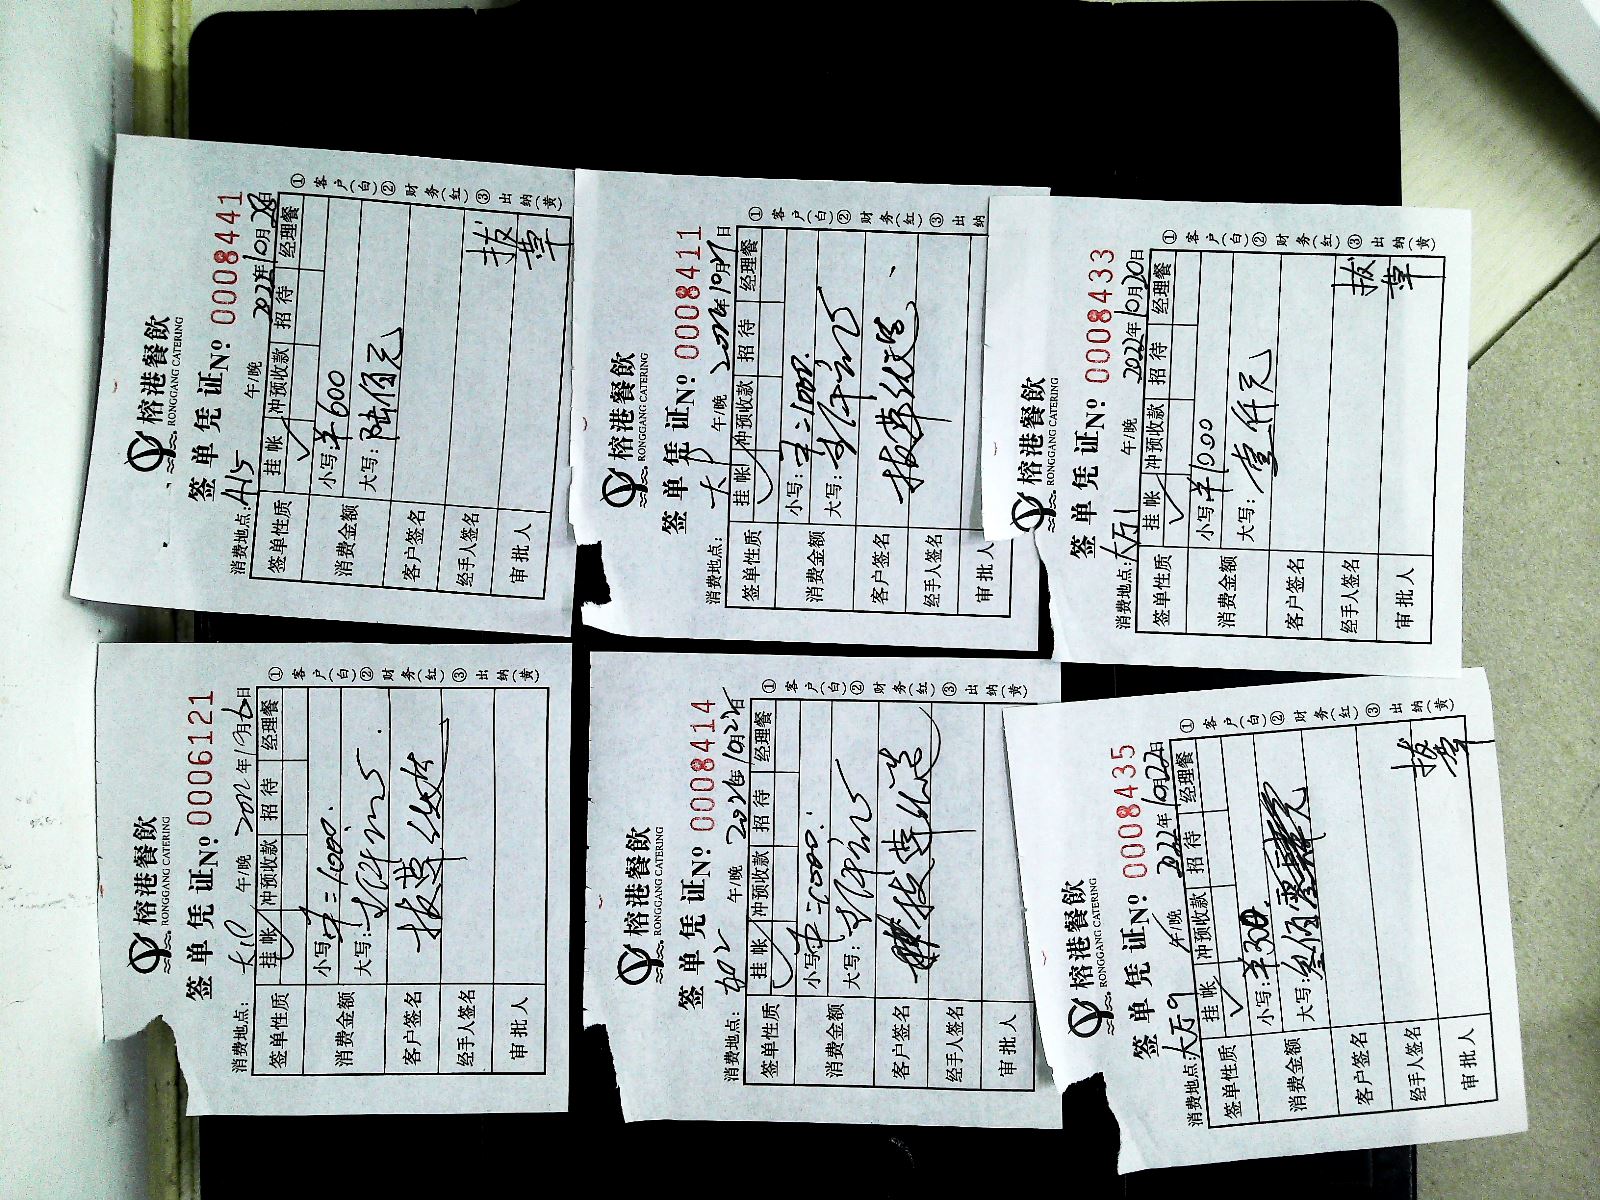 榕港餐飲
RONGGANG CATERING
签单凭证 Nº 0008441
消费地点: A15 午/晚 2022年10月日
签单性质 挂帐 冲预收款 招待 经理餐
消费金额 小写: 羊600
大写: 陆佰元
客户签名
经手人签名
审批人
①客户(白)②财务(红)③出纳(黄)
榕港餐飲
RONGGANG CATERING
签单凭证 Nº 0008411
消费地点: 午/晚 2022年10月日
签单性质 挂帐 冲预收款 招待 经理餐
消费金额 小写:
大写:
客户签名
经手人签名
审批人
①客户(白)②财务(红)③出纳
榕港餐飲
RONGGANG CATERING
签单凭证 Nº 0008433
消费地点: 午/晚 2022年10月20日
签单性质 挂帐 冲预收款 招待 经理餐
消费金额 小写: 羊1000
大写: 壹仟元
客户签名
经手人签名
审批人
①客户(白)②财务(红)③出纳(黄)
榕港餐飲
RONGGANG CATERING
签单凭证 Nº 0006121
消费地点: 午/晚 2022年月日
签单性质 挂帐 冲预收款 招待 经理餐
消费金额 小写: 1000.
大写:
客户签名
经手人签名
审批人
①客户(白)②财务(红)③出纳(黄)
榕港餐飲
RONGGANG CATERING
签单凭证 Nº 0008414
消费地点: 午/晚 2022年10月22日
签单性质 挂帐 冲预收款 招待 经理餐
消费金额 小写:
大写:
客户签名
经手人签名
审批人
①客户(白)②财务(红)③出纳(黄)
榕港餐飲
RONGGANG CATERING
签单凭证 Nº 0008435
消费地点: 午/晚 2022年10月22日
签单性质 挂帐 冲预收款 招待 经理餐
消费金额 小写: 羊300.
大写: 叁佰
客户签名
经手人签名
审批人
①客户(白)②财务(红)③出纳(黄)